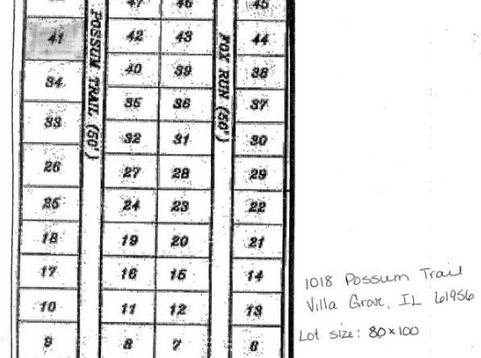 47 46 45
41 42 43 44
34 40 39 38
33 35 36 37
32 31 30
26 27 28 29
25 24 23 22
18 19 20 21
17 16 15 14
10 11 12 13
9 8 7 6
POSSUM TRAIL (50')
FOX RUN (50')
1018 Possum Trail
Villa Grove, IL 61956
Lot size: 80x100